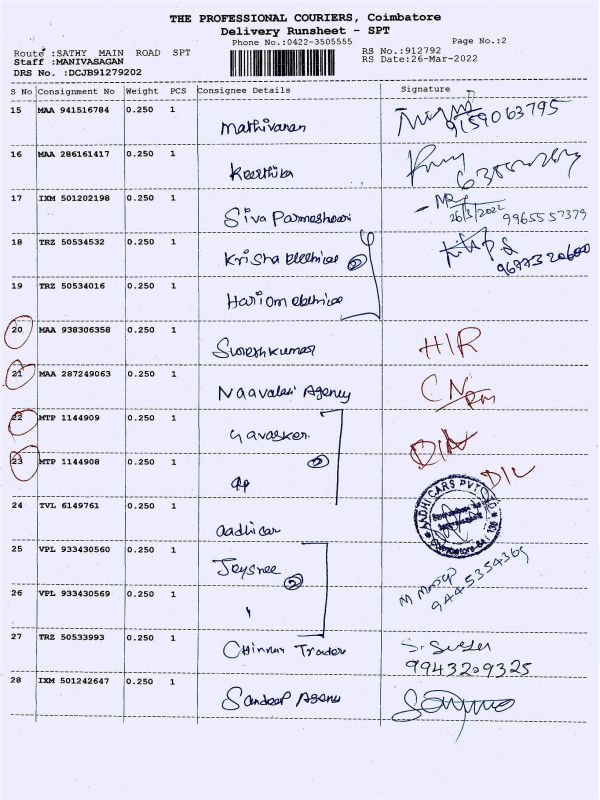 THE PROFESSIONAL COURIERS, Coimbatore
Delivery Runsheet - SPT
Phone No.:0422-3505555 Page No.:2
Route :SATHY MAIN ROAD SPT RS No.:912792
Staff :MANIVASAGAN RS Date:26-Mar-2022
DRS No. :DCJB91279202
S No Consignment No Weight PCS Consignee Details Signature
15 MAA 941516784 0.250 1 Mathivanan 9159063795
16 MAA 286161417 0.250 1 Keerthika
17 IXM 501202198 0.250 1 Siva Parmeshwari 26/3/2022 9965557379
18 TRZ 50534532 0.250 1 Krisha 2
19 TRZ 50534016 0.250 1 Hariom
20 MAA 938306358 0.250 1 Sureshkumar
21 MAA 287249063 0.250 1 Naavalar Agency CN
22 MTP 1144909 0.250 1 Gavasker
23 MTP 1144908 0.250 1 2 DIL
24 TVL 6149761 0.250 1 aadhicar AADHI CARS PVT LTD
25 VPL 933430560 0.250 1 Jeysree
26 VPL 933430569 0.250 1 " 2 9445354369
27 TRZ 50533993 0.250 1 Chinnan Trader 9943209325
28 IXM 501242647 0.250 1 Sandeep Agency